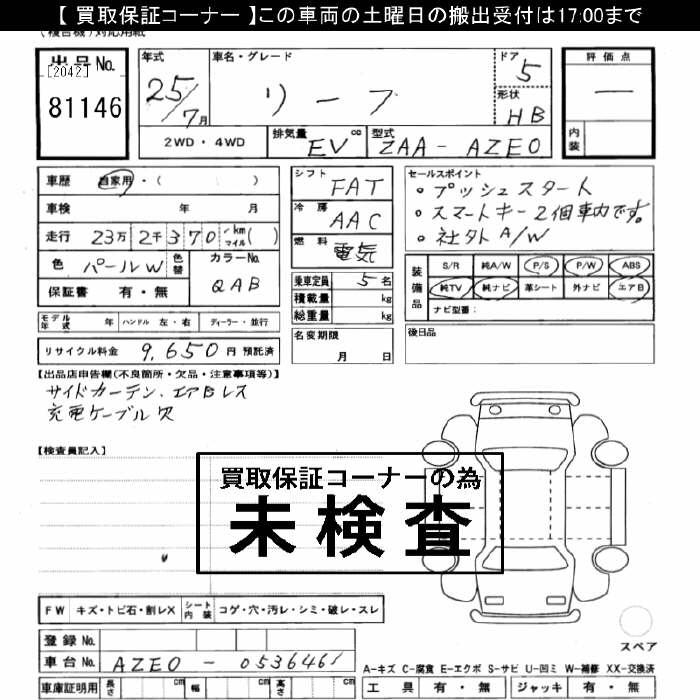 【 買取保証コーナー 】この車両の土曜日の搬出受付は17:00まで
(複合機)対応用紙
出品No. [2042] 81146
年式 25/7月
車名・グレード リーフ
ドア 5
形状 HB
評価点 一
内装
2WD・4WD
排気量 EV cc
型式 ZAA-AZE0
車歴 自家用・( )
車検 年 月
走行 23万2千370 km マイル( )
色 パールW 色替
カラーNo. QAB
保証書 有・無
シフト FAT
冷房 AAC
燃料 電気
乗車定員 5名
積載量 kg
総重量 kg
名変期限 月 日
セールスポイント
。プッシュスタート
。スマートキー2個車内です。
。社外A/W
装備品 S/R 純A/W P/S P/W ABS
純TV 純ナビ 革シート 外ナビ エアB
ナビ型番:
後日品
モデル年式 年 ハンドル 左・右 ディーラー・並行
リサイクル料金 9,650円 預託済
【出品店申告欄(不良箇所・欠品・注意事項等)】
サイドカーテン、エアBレス
充電ケーブル欠
【検査員記入】
買取保証コーナーの為
未検査
FW キズ・トビ石・割レX シート内装 コゲ・穴・汚レ・シミ・破レ・スレ
登録No.
車台No. AZE0-0536461
車庫証明用 長さ cm 幅 cm 高さ cm
スペア
A-キズ C-腐食 E-エクボ S-サビ U-凹ミ W-補修 XX-交換済
工具 有・無 ジャッキ 有・無